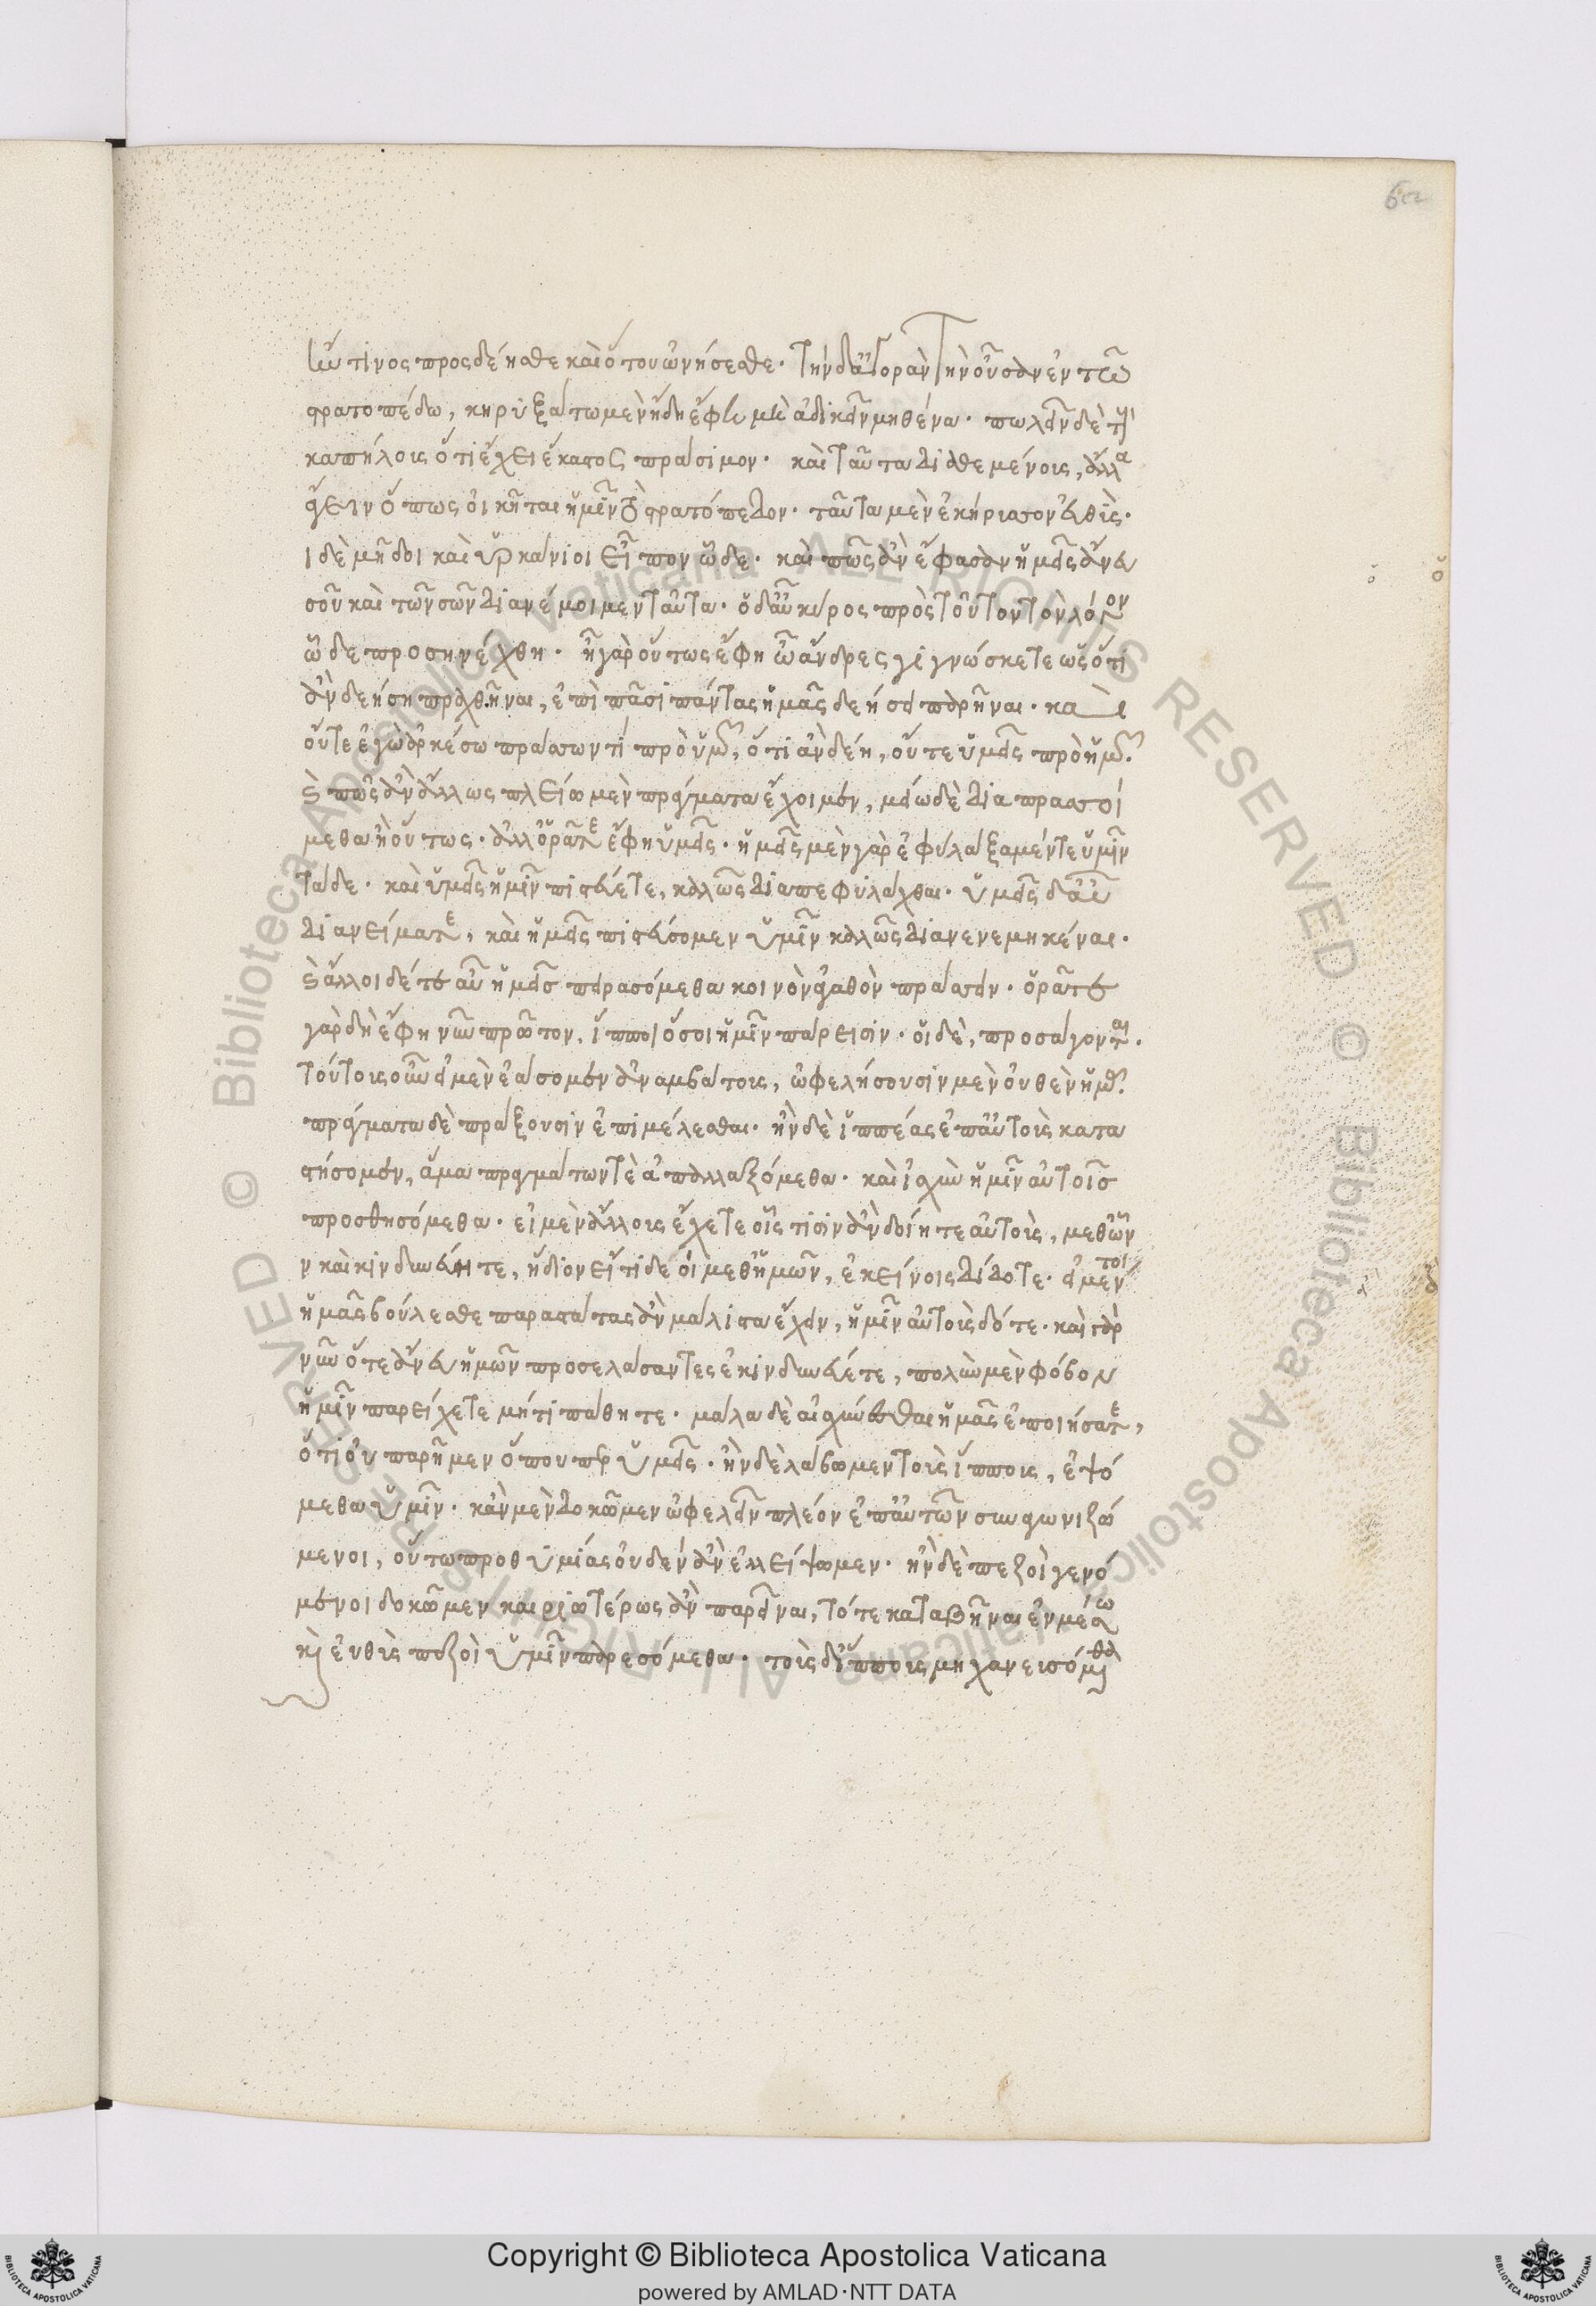 ὧν τινος προσδέησθε καὶ ὅτου ὠνήσεσθε. τὴν δ' ἀγορὰν τὴν οὖσαν ἐν τῶ
στρατοπέδω, κηρυξάτω μὲν ἤδη ἔφη μὴ ἀδικεῖν μηθένα. πωλεῖν δὲ τοὺς
καπήλους ὅτι ἔχει ἕκαστος πράσιμον. καὶ ταῦτα διαθεμένους, ἄλλα
ἄγειν ὅπως οἰκῆται ἡμῖν τὸ στρατόπεδον. ταῦτα μὲν ἐκήρυττον εὐθύς.
ι δὲ μῆδοι καὶ ὑρκάνιοι εἶπον ὧδε. καὶ πῶς ἂν ἔφασαν ἡμεῖς ἄνευ
σοῦ καὶ τῶν σῶν διανέμοιμεν ταῦτα. ὁ δ' αὖ κῦρος πρὸς τοῦτον τὸν λόγον
ὧδε προσηνέχθη. ἦ γὰρ οὕτως ἔφη ὦ ἄνδρες γιγνώσκετε ὡς ὅτι
ἂν δεήση πραχθῆναι, ἐπὶ πᾶσι πάντας ἡμᾶς δεήσει παρεῖναι. καὶ
οὔτε ἐγὼ ἀρκέσω πράττων τι πρὸ ὑμῶν, ὅτι ἂν δέη, οὔτε ὑμεῖς πρὸ ἡμῶν.
καὶ πῶς ἂν ἄλλως πλείω μὲν πράγματα ἔχοιμεν, μείω δὲ διαπραττοί
μεθα ἢ οὕτως. ἀλλ' ὁρᾶτε ἔφη ὑμεῖς. ἡμεῖς μὲν γὰρ ἐφυλάξαμέν τε ὑμῖν
τάδε. καὶ ὑμεῖς ἡμῖν πιστεύετε, καλῶς διαπεφυλάχθαι. ὑμεῖς δ' αὖ
διανείματε, καὶ ἡμεῖς πιστεύσομεν ὑμῖν καλῶς διανενεμηκέναι.
καὶ ἄλλοι δέ τε αὖ ἡμεῖς πειρασόμεθα κοινὸν ἀγαθὸν πράττειν. ὁρᾶτε
γὰρ δὴ ἔφη νῦν πρῶτον, ἵπποι ὅσοι ἡμῖν πάρεισιν. οἱ δὲ, προσάγονται.
τούτους οὖν εἰ μὲν ἐάσομεν ἀναμβάτους, ὠφελήσουσιν μὲν οὐθὲν ἡμᾶς.
πράγματα δὲ πράξουσιν ἐπιμέλεσθαι. ἢν δὲ ἱππέας ἐπ' αὐτοὺς κατα
στήσομεν, ἅμα πραγμάτων τὲ ἀπαλλαξόμεθα. καὶ ἰσχὺν ἡμῖν αὐτοῖς
προσθησόμεθα. εἰ μὲν ἄλλους ἔχετε οἷς τισὶν ἂν δοίητε αὐτοὺς, μεθ' ὧν
ν καὶ κινδυνεύητε, ἥδιον εἴ τι δέοι μεθ' ἡμῶν, ἐκείνοις δίδοτε. εἰ μέντοι
ἡμᾶς βούλεσθε παραστάτας ἂν μάλιστα ἔχειν, ἡμῖν αὐτοὺς δότε. καὶ γὰρ
νῦν ὅτε ἄνευ ἡμῶν προσελάσαντες ἐκινδυνεύετε, πολὺν μὲν φόβον
ἡμῖν παρείχετε μή τι πάθητε. μάλα δὲ αἰσχύνεσθαι ἡμᾶς ἐποιήσατε,
ὅτι οὐ παρῆμεν ὅπου περ ὑμεῖς. ἢν δὲ λάβωμεν τοὺς ἵππους, ἑψό
μεθα ὑμῖν. κἂν μὲν δοκῶμεν ὠφελεῖν πλέον ἐπ' αὐτῶν συναγωνιζό
μενοι, οὕτω προθυμίας οὐδὲν ἂν ἐλλείψωμεν. ἢν δὲ πεζοὶ γενό
μενοι δοκῶμεν καιριωτέρως ἂν παρεῖναι, τό τε καταβῆναι ἐν μέσω
καὶ εὐθὺς πεζοὶ ὑμῖν παρεσόμεθα. τοὺς δ' ἵππους μηχανεισόμεθα